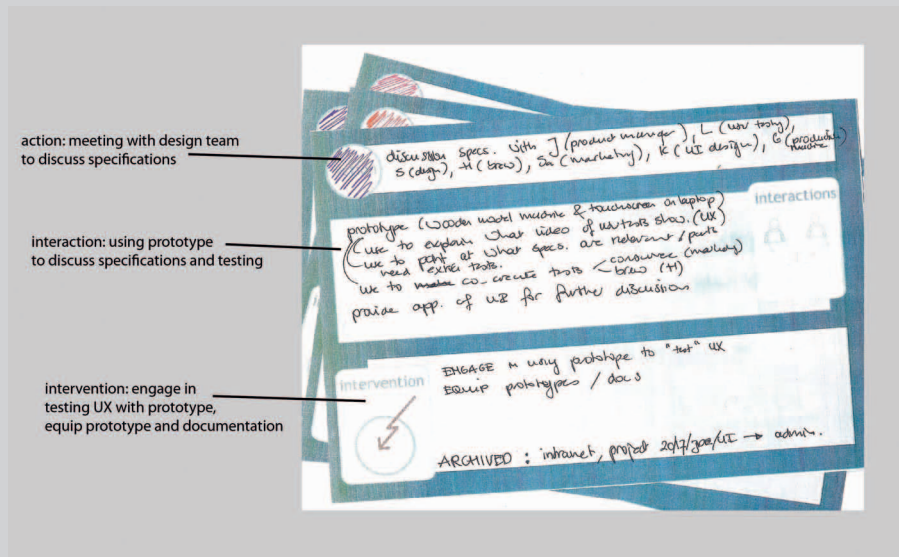 action: meeting with design team
to discuss specifications
interaction: using prototype
to discuss specifications and testing
intervention: engage in
testing UX with prototype,
equip prototype and documentation
discussion specs. with J (product manager), L (usr testg),
S (design), H (brew), Sa (marketing), K (UI design), G (production machine)
interactions
prototype (wooden model machine & touchscreen on laptop)
use to explain what video of usr tests show. (UX)
use to point at what specs. are relevant / parts
need extra tests.
use to co-create tests < consumer (marketing)
brew (H)
provide app. of UI for further discussion
intervention
ENGAGE in using prototype to "test" UX
EQUIP prototypes / docs
ARCHIVED : intranet, project → admin.